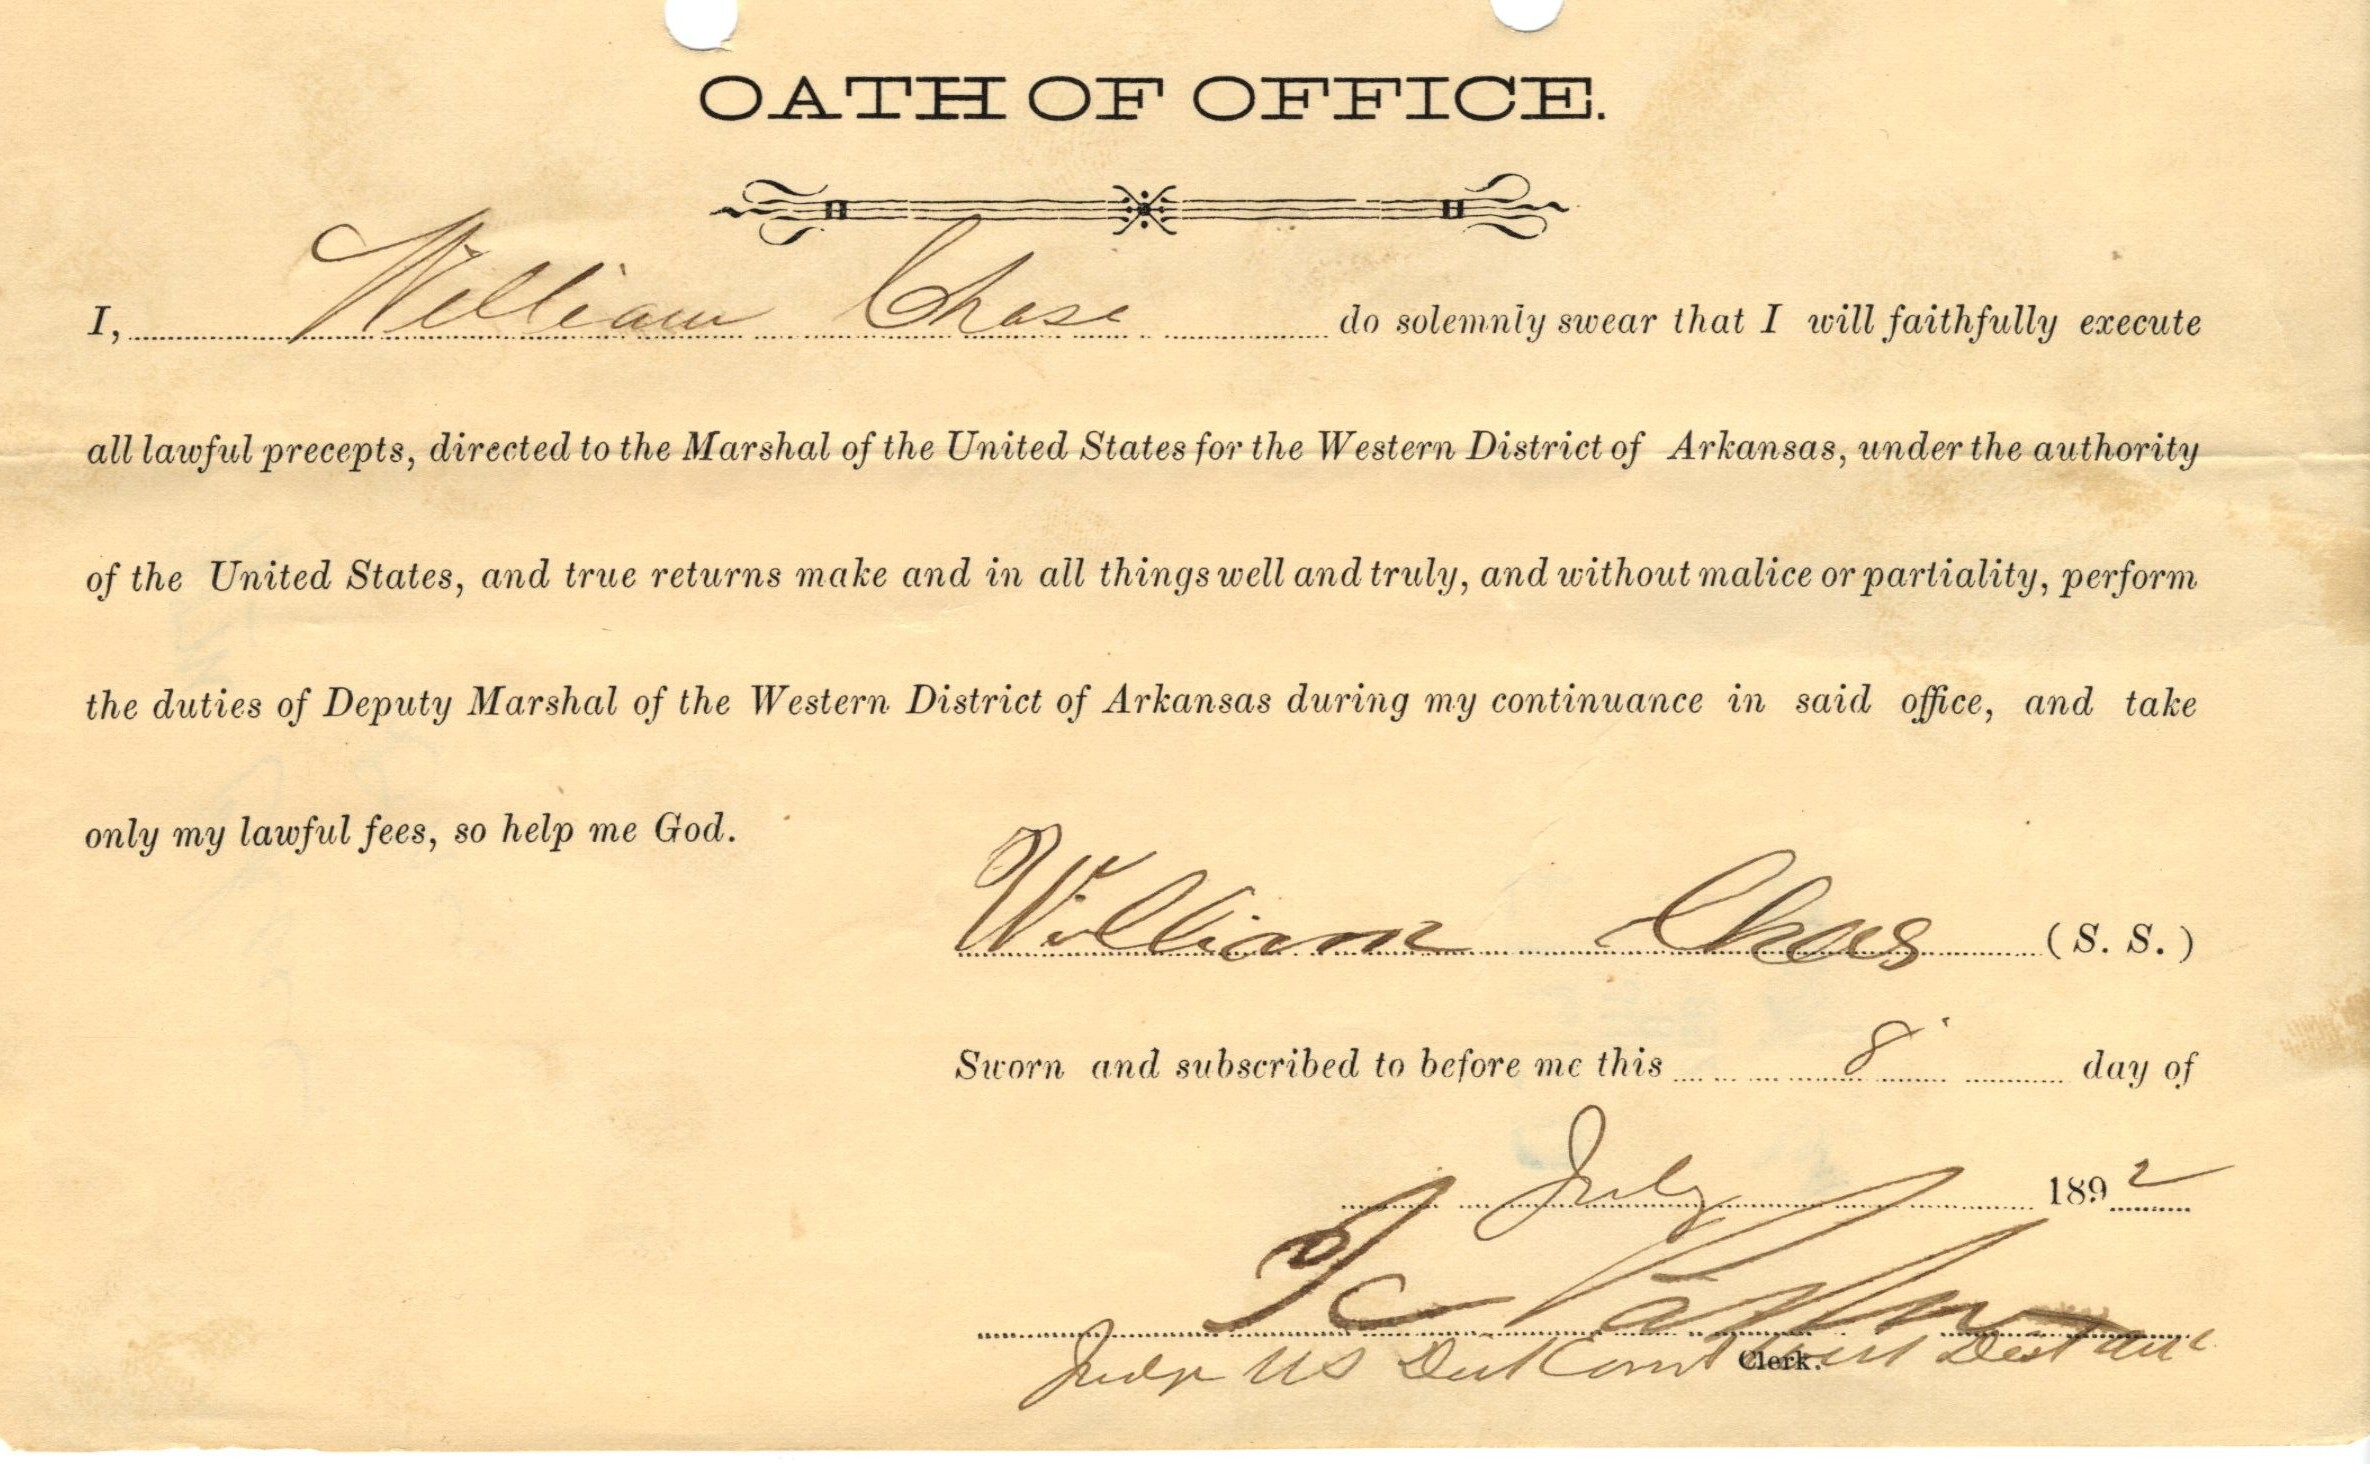 OATH OF OFFICE.
I, William Chase do solemnly swear that I will faithfully execute
all lawful precepts, directed to the Marshal of the United States for the Western District of Arkansas, under the authority
of the United States, and true returns make and in all things well and truly, and without malice or partiality, perform
the duties of Deputy Marshal of the Western District of Arkansas during my continuance in said office, and take
only my lawful fees, so help me God.
William Chaes (S. S.)
Sworn and subscribed to before me this 8 day of
July 1892
I C Parker
Judge US Dist Court West Dist Ark
Clerk.